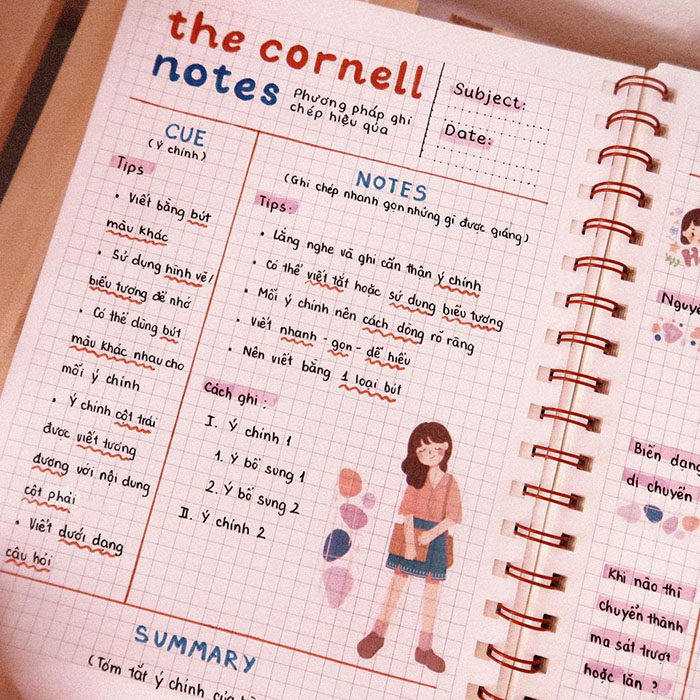 the cornell
notes
Phương pháp ghi
chép hiệu qủa
Subject:
Date:
CUE
(Ý chính)
Tips
• Viết bằng bút
màu khác
• Sử dụng hình vẽ/
biểu tượng để nhớ
• Có thể dùng bút
màu khác nhau cho
mỗi ý chính
• Ý chính cột trái
được viết tương
đương với nội dung
cột phải
• Viết dưới dạng
câu hỏi
NOTES
(Ghi chép nhanh gọn những gì được giảng)
Tips:
• Lắng nghe và ghi cẩn thận ý chính
• Có thể viết tắt hoặc sử dụng biểu tượng
• Mỗi ý chính nên cách dòng rõ ràng
• Viết nhanh - gọn - dễ hiểu
• Nên viết bằng 1 loại bút
Cách ghi:
I. Ý chính 1
1. Ý bổ sung 1
2. Ý bổ sung 2
II. Ý chính 2
SUMMARY
(Tóm tắt ý chính của
Nguyê
Biến dạng
di chuyển
Khi nào thì
chuyển thành
ma sát trượt
hoặc lăn,